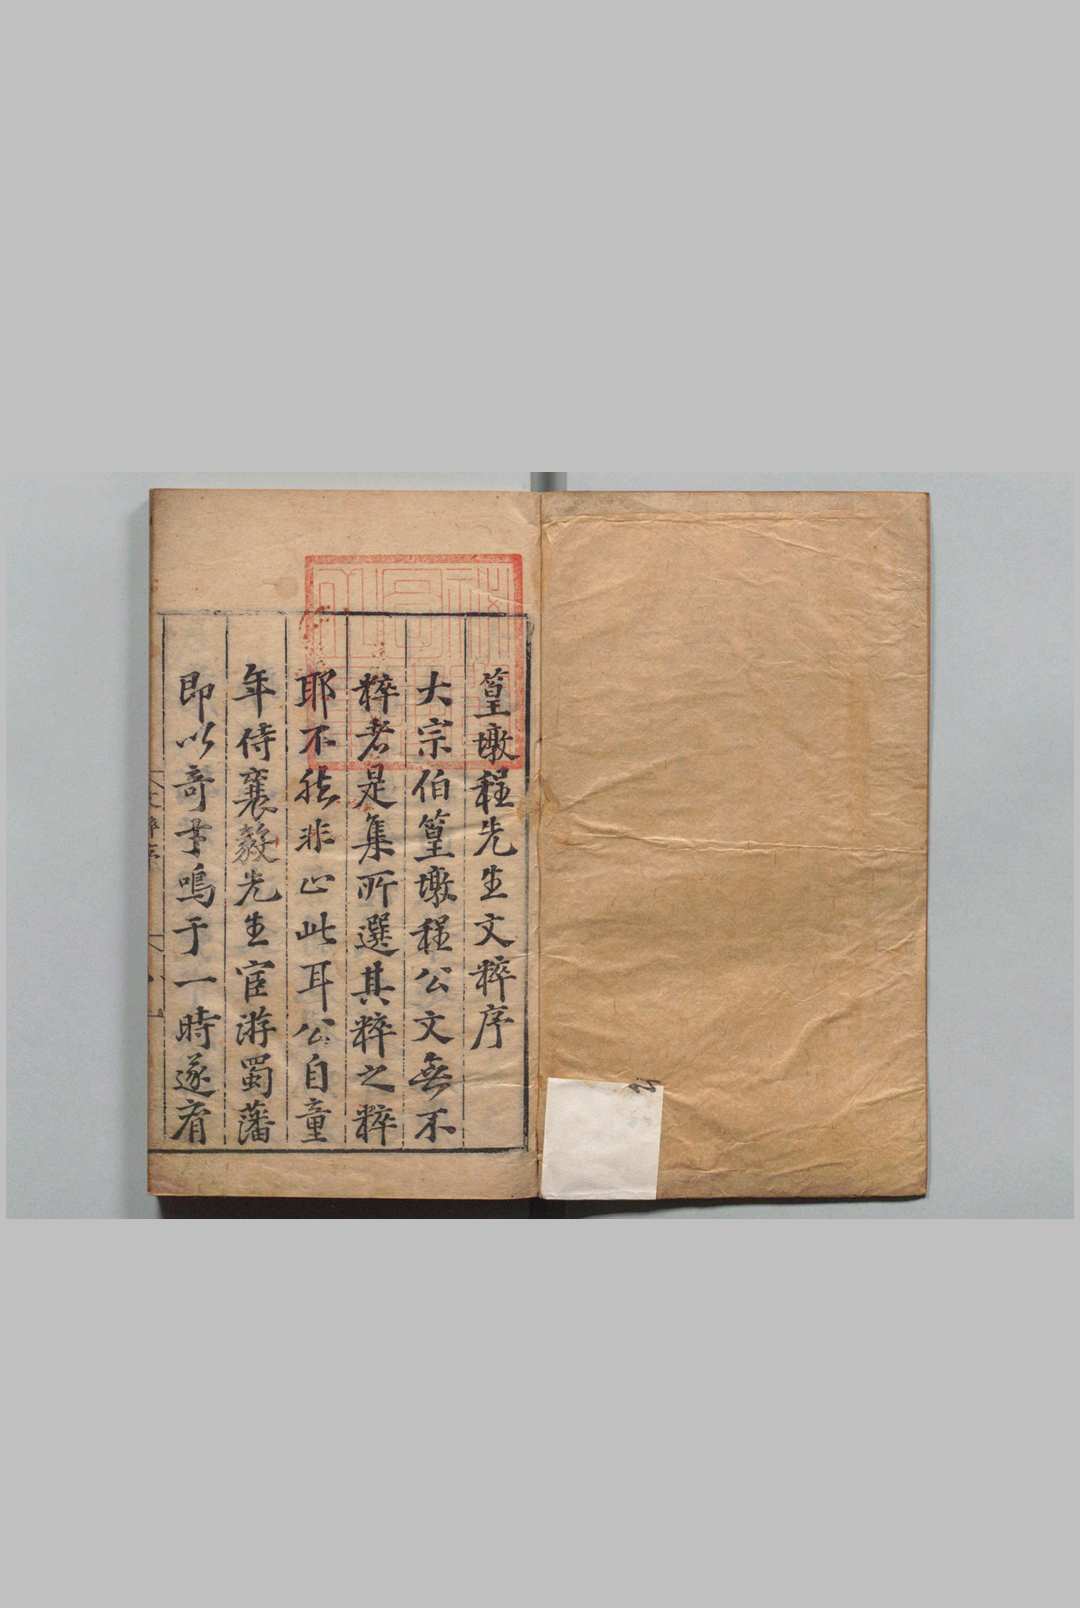 篁墩程先生文粹序
大宗伯篁墩程公文無不
粹者是集所選其粹之粹
耶不然非止此耳公自童
年侍襄毅先生宦游蜀藩
即以奇才鳴于一時遂有